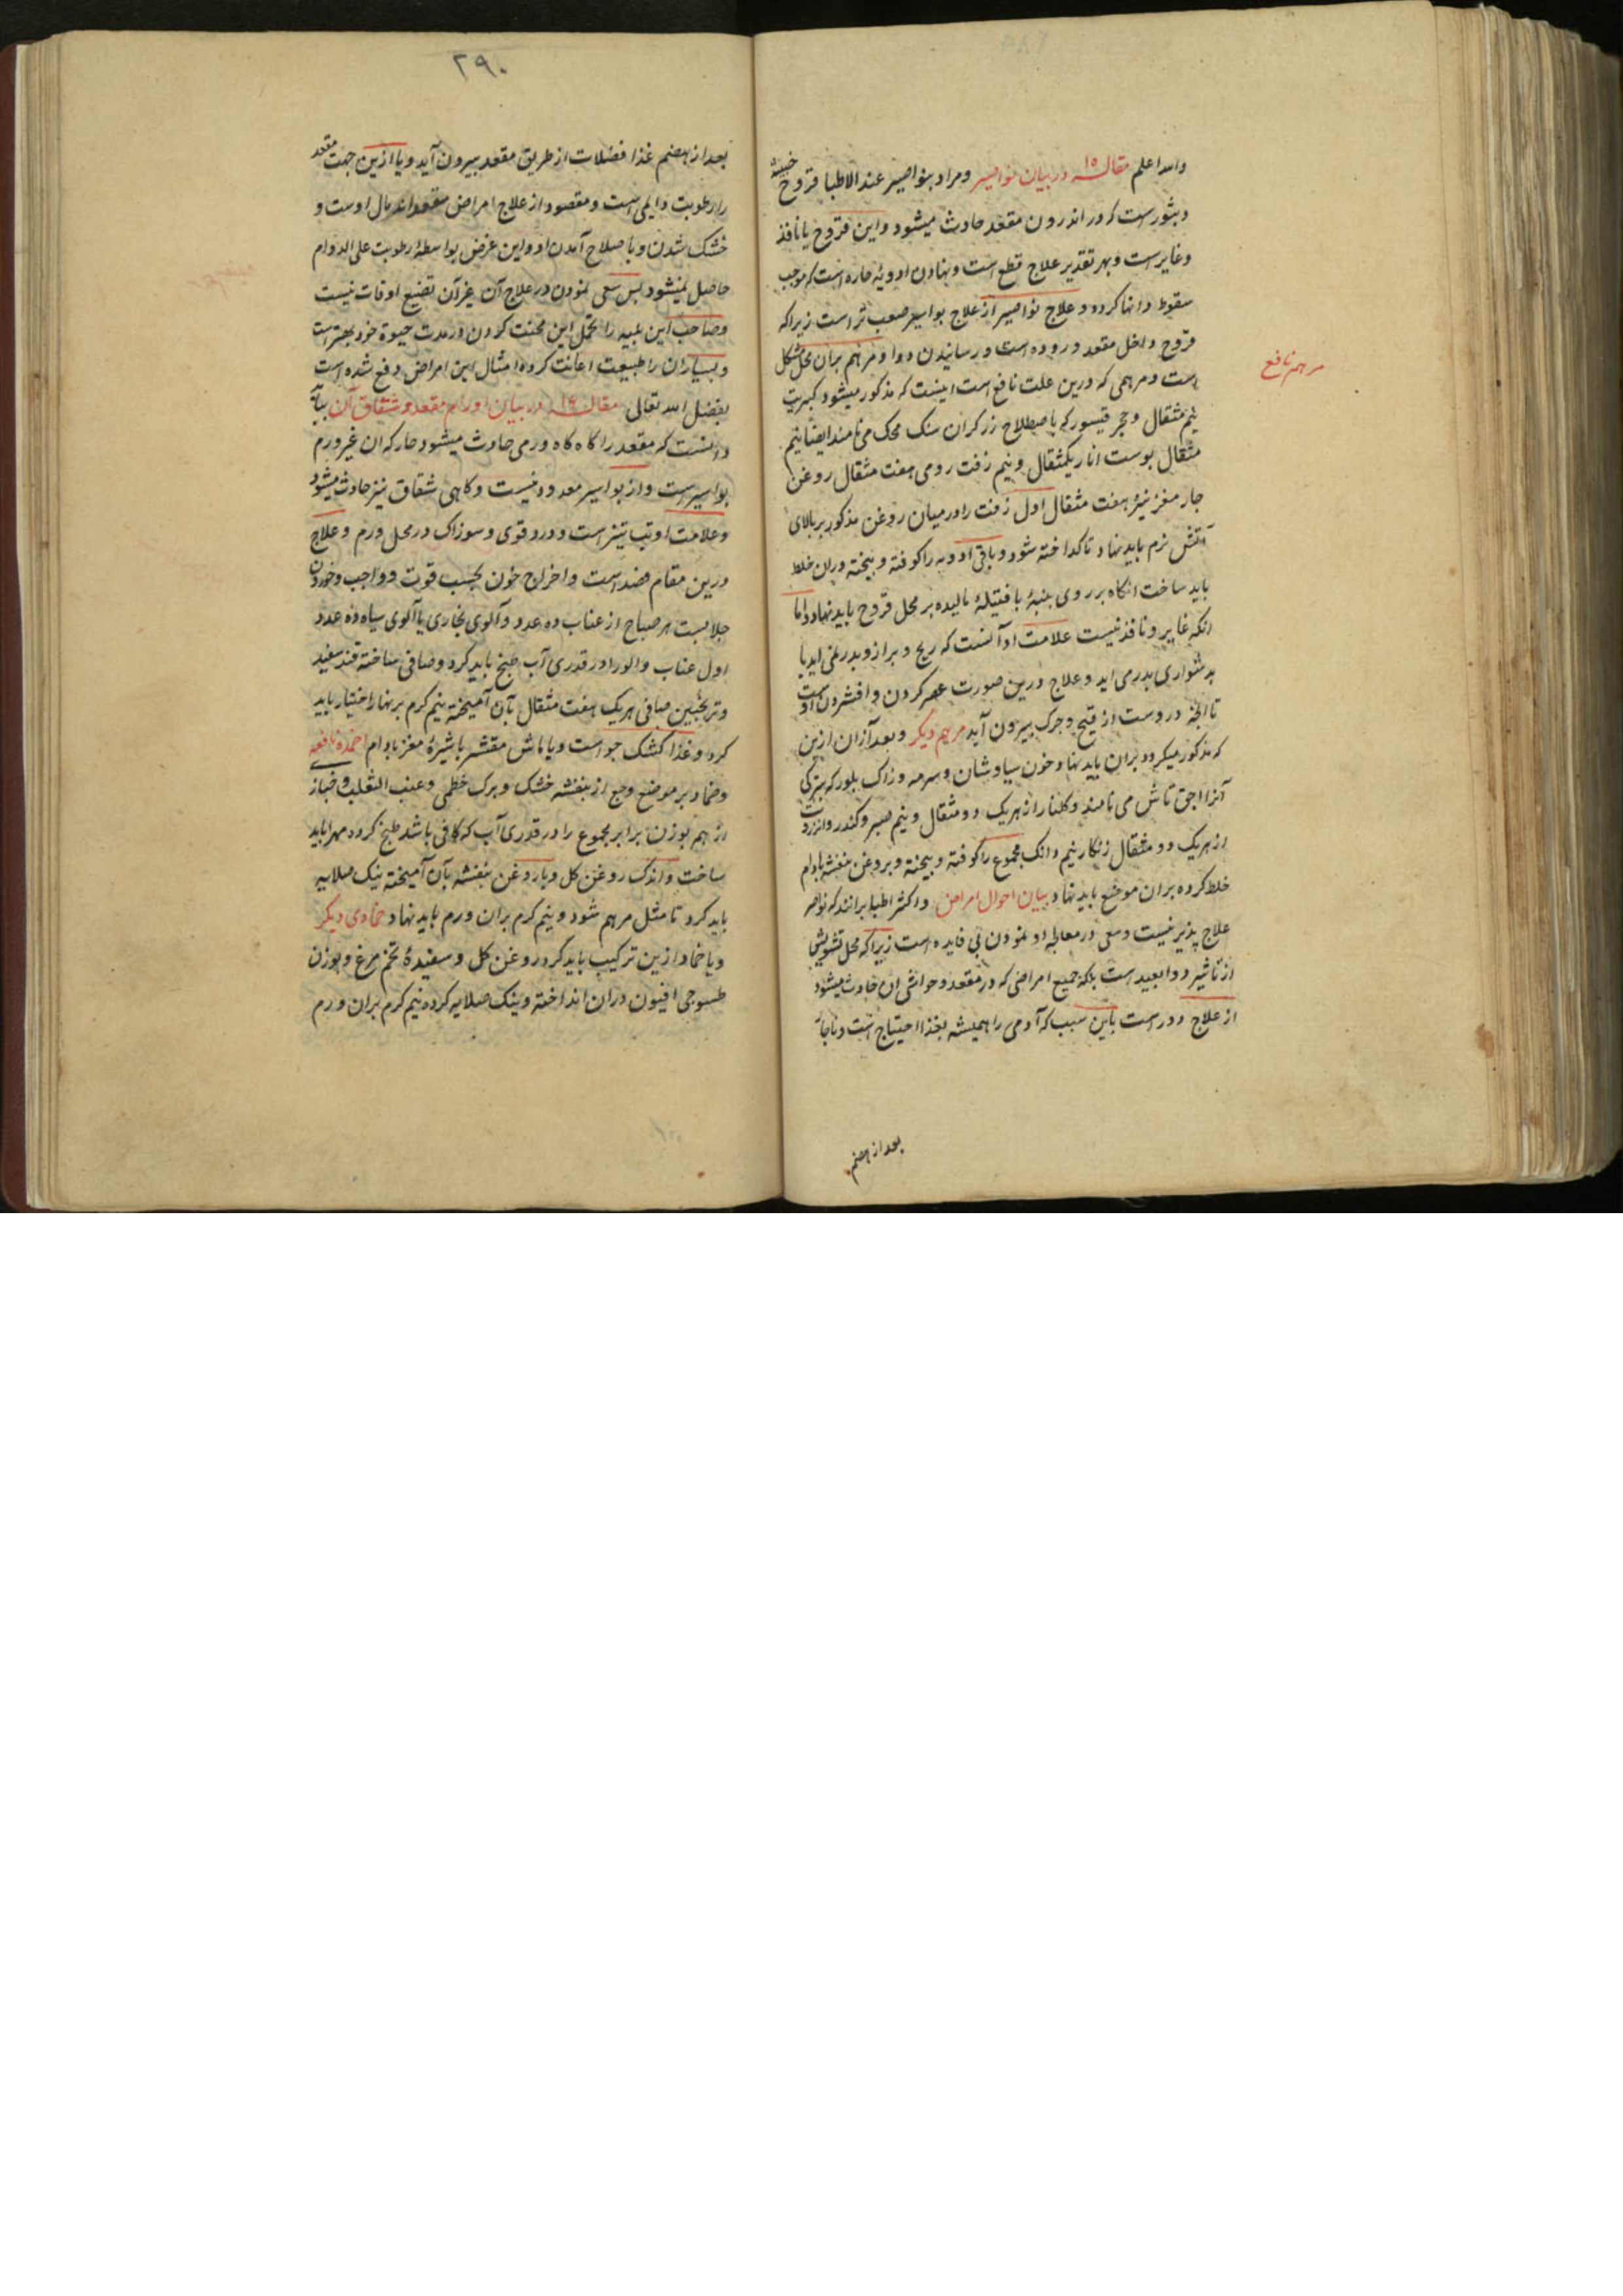 والله اعلم مقاله ١٥ در بیان نواصیر ومراد بنواصیر عند الاطبا قروح خبیثه
وبثورست که در اندرون مقعد حادث میشود واین قروح یا نافذ
وغایرست وبهر تقدیر علاج قطع است ونهادن ادویهٔ حاره است که موجب
سقوط دانها کردد وعلاج نواصیر از علاج بواسیر صعب تر است زیراکه
قروح داخل مقعد وروده است ورسانیدن دوا ومرهم بران محل مشکل
است ومرهمی که درین علت نافع است اینست که مذکور میشود کبریت
مرهم نافع
نیم مثقال وحجر قیسور که باصطلاح زرکران سنک محک می نامند ایضا نیم
مثقال پوست انار یکمثقال ونیم زفت رومی هفت مثقال روغن
چار مغز نیزه هفت مثقال اول زفت را در میان روغن مذکور بر بالای
آتش نرم باید نهاد تا کداخته شود وباقی ادویه را کوفته وبیخته دران خلط
باید ساخت انکاه بر روی پنبهٔ یا فتیلهٔ مالیده بر محل قروح باید نهاد واما
انکه غایر ونافذ نیست علامت او آنست که ریح وبراز وبدر نمی اید یا
بدشواری بدر می اید وعلاج درین صورت عصر کردن وافشردن اوست
تا انچه دروست از قیح وچرک بیرون آید مرهم دیکر وبعد از ان ازین
که مذکور میکردد بران باید نهاد خون سیاوشان وسرمه وزاک بلور که بترکی
آنرا اجق تاش می نامند وکلنار از هریک دو مثقال ونیم صبر وکندر وانزروت
از هریک دو مثقال زنکار نیم دانک مجموع را کوفته وبیخته وبروغن بنفشه بادام
خلط کرده بران موضع باید نهاد بیان احوال امراض واکثر اطبا برانند که نواصیر
علاج پذیر نیست وسعی در معالجهٔ او نمودن بی فایده است زیراکه محل تشویش
از تاثیر دوا بعید است بلکه جمیع امراضی که در مقعد وحواشی ان حادث میشود
از علاج دورست باین سبب که آدمی را همیشه بغذا احتیاج است وناچار
بعد از هضم
٢٩٠
بعد از هضم غذا فضلات از طریق مقعد بیرون آید ویا ازین جهت مقعد
را رطوبت دایمی است ومقصود از علاج امراض مقعد اندمال اوست و
خشک شدن وباصلاح آمدن او واین غرض بواسطهٔ رطوبت علی الدوام
حاصل نمیشود پس سعی نمودن در علاج آن غیر آن تضیع اوقات نیست
وصاحب این بلیه را تحمل این محنت کردن در مدت حیوة خود بهتر است
وبسیاران را طبیعت اعانت کرده امثال این امراض دفع شده است
بفضل الله تعالی مقاله ١٦ در بیان اورام مقعد وشقاق آن بباید
دانست که مقعد را کاه کاه ورمی حادث میشود حار که ان غیر ورم
بواسیرست واز بواسیر معدود نیست وکاهی شقاق نیز حادث میشود
وعلامت او تب تیز است ودرد قوی وسوزاک در محل ورم وعلاج
درین مقام فصد است واخراج خون بحسب قوت وواجب وخوردن
جلابست هر صباح از عناب ده عدد وآلوی بخاری یا آلوی سیاه ده عدد
اول عناب والو را در قدری آب طبخ باید کرد وصافی ساخته قند سفید
وترنجبین صافی هریک هفت مثقال بآن آمیخته نیم کرم بر نهار اختیار باید
کرد وغذا کشک جو است ویا ماش مقشر با شیرهٔ مغز بادام اضمده نافعه
وضماد بر موضع وجع از بنفشه خشک وبرک خطمی وعنب الثعلب وخباز
از هم بوزن برابر مجموع را در قدری آب که کافی باشد طبخ کرده مهرا باید
ساخت واندک روغن کل ویا روغن بنفشه بآن آمیخته نیک صلایه
باید کرد تا مثل مرهم شود ونیم کرم بران ورم باید نهاد ضمادی دیکر
ویا ضماد ازین ترکیب باید کرد روغن کل وسفیدهٔ تخم مرغ وبوزن
طسوجی افیون دران انداخته ونیک صلایه کرده نیم کرم بران ورم